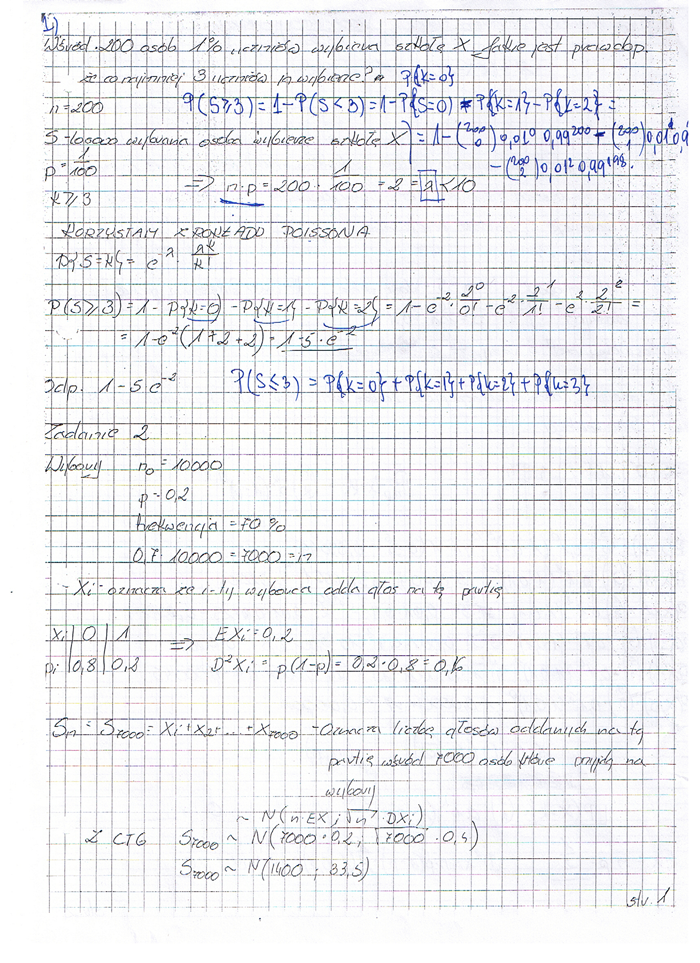 1)
Wśród 200 osób 1% uczniów wybiera szkołę X. Jakie jest prawdop.
że co najmniej 3 uczniów ją wybierze? P{k=0}
n=200 P(S≥3) = 1-P(S<3) = 1-P{S=0} - P{k=1} - P{k=2} =
S - losowo wybrana osoba wybierze szkołę X = 1-(200 0) 0,01⁰ 0,99²⁰⁰ - (200 1) 0,01¹
p = 1/100 - (200 2) 0,01² 0,99¹⁹⁸.
k≥3 => n·p = 200 · 1/100 = 2 = λ < 10
KORZYSTAM Z ROZKŁADU POISSONA
P{S=k} = e^λ · λ^k/k!
P(S≥3) = 1 - P{k=0} - P{k=1} - P{k=2} = 1 - e⁻² · 2⁰/0! - e⁻² · 2¹/1! - e⁻² · 2²/2! =
= 1-e⁻²(1+2+2) = 1-5·e⁻²
Odp. 1-5e⁻² P(S≤3) = P{k=0} + P{k=1} + P{k=2} + P{k=3}
Zadanie 2
Wybory n₀ = 10000
p = 0,2
frekwencja = 70%
0,7 · 10000 = 7000 = n
- Xi - oznacza że i-ty wyborca odda głos na tę partię
xi | 0 | 1 => EXi = 0,2
pi | 0,8 | 0,2 D²Xi = p(1-p) = 0,2 · 0,8 = 0,16
Sn = S₇₀₀₀ = X₁+X₂+...+X₇₀₀₀ - oznacza liczbę głosów oddanych na tę
partię wśród 7000 osób które przyjdą na
wybory
~ N(n·EX; √n · DXi)
Z CTG S₇₀₀₀ ~ N(7000 · 0,2; √7000 · 0,4)
S₇₀₀₀ ~ N(1400; 33,5)
str. 1